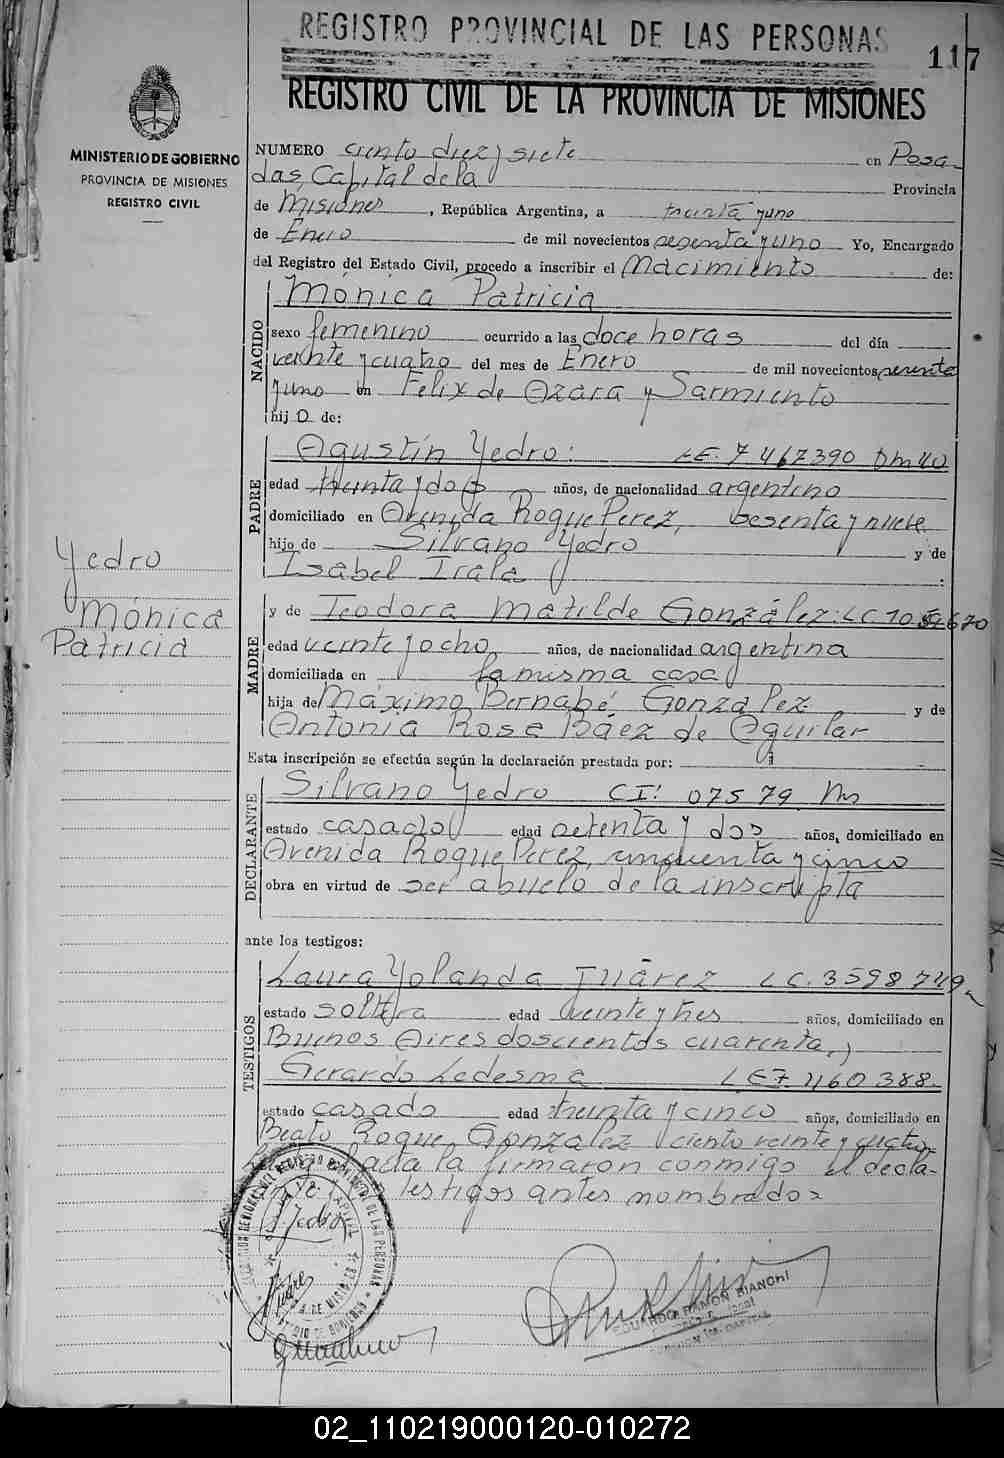 REGISTRO PROVINCIAL DE LAS PERSONAS
117
REGISTRO CIVIL DE LA PROVINCIA DE MISIONES
MINISTERIO DE GOBIERNO
PROVINCIA DE MISIONES
REGISTRO CIVIL
NUMERO ciento diez y siete en Posa-
das, Capital de la Provincia
de Misiones, República Argentina, a treinta y uno
de Enero de mil novecientos sesenta y uno Yo, Encargado
del Registro del Estado Civil, procedo a inscribir el Nacimiento de:
NACIDO
Mónica Patricia
sexo femenino ocurrido a las doce horas del día
veinte y cuatro del mes de Enero de mil novecientos sesenta
y uno en Felix de Azara y Sarmiento
hij a de:
PADRE
Agustín Yedro: LE. 7467390 DM 40
edad treinta y dos años, de nacionalidad argentino
domiciliado en Avenida Roque Perez, sesenta y nueve
hijo de Silvano Yedro y de
Isabel Irala :
Yedro
Mónica
Patricia
MADRE
y de Teodora Matilde González: LC.
edad veinte y ocho años, de nacionalidad argentina
domiciliada en la misma casa
hija de Máximo Bernabé Gonzalez y de
Antonia Rosa Báez de Aguilar
Esta inscripción se efectúa según la declaración prestada por:
DECLARANTE
Silvano Yedro CI: 07579 Ms
estado casado edad setenta y dos años, domiciliado en
Avenida Roque Perez, cincuenta y cinco
obra en virtud de ser abuelo de la inscripta
ante los testigos:
TESTIGOS
Laura Yolanda Juárez LC. 3598749
estado soltera edad veinte y tres años, domiciliado en
Buenos Aires doscientos cuarenta, y
Gerardo Ledesma LE 7.460.388.
estado casado edad treinta y cinco años, domiciliado en
Beato Roque González ciento veinte y cuatro
acta la firmaron conmigo el decla-
testigos antes nombrados
EDUARDO RAMON BIANCHI
02_110219000120-010272